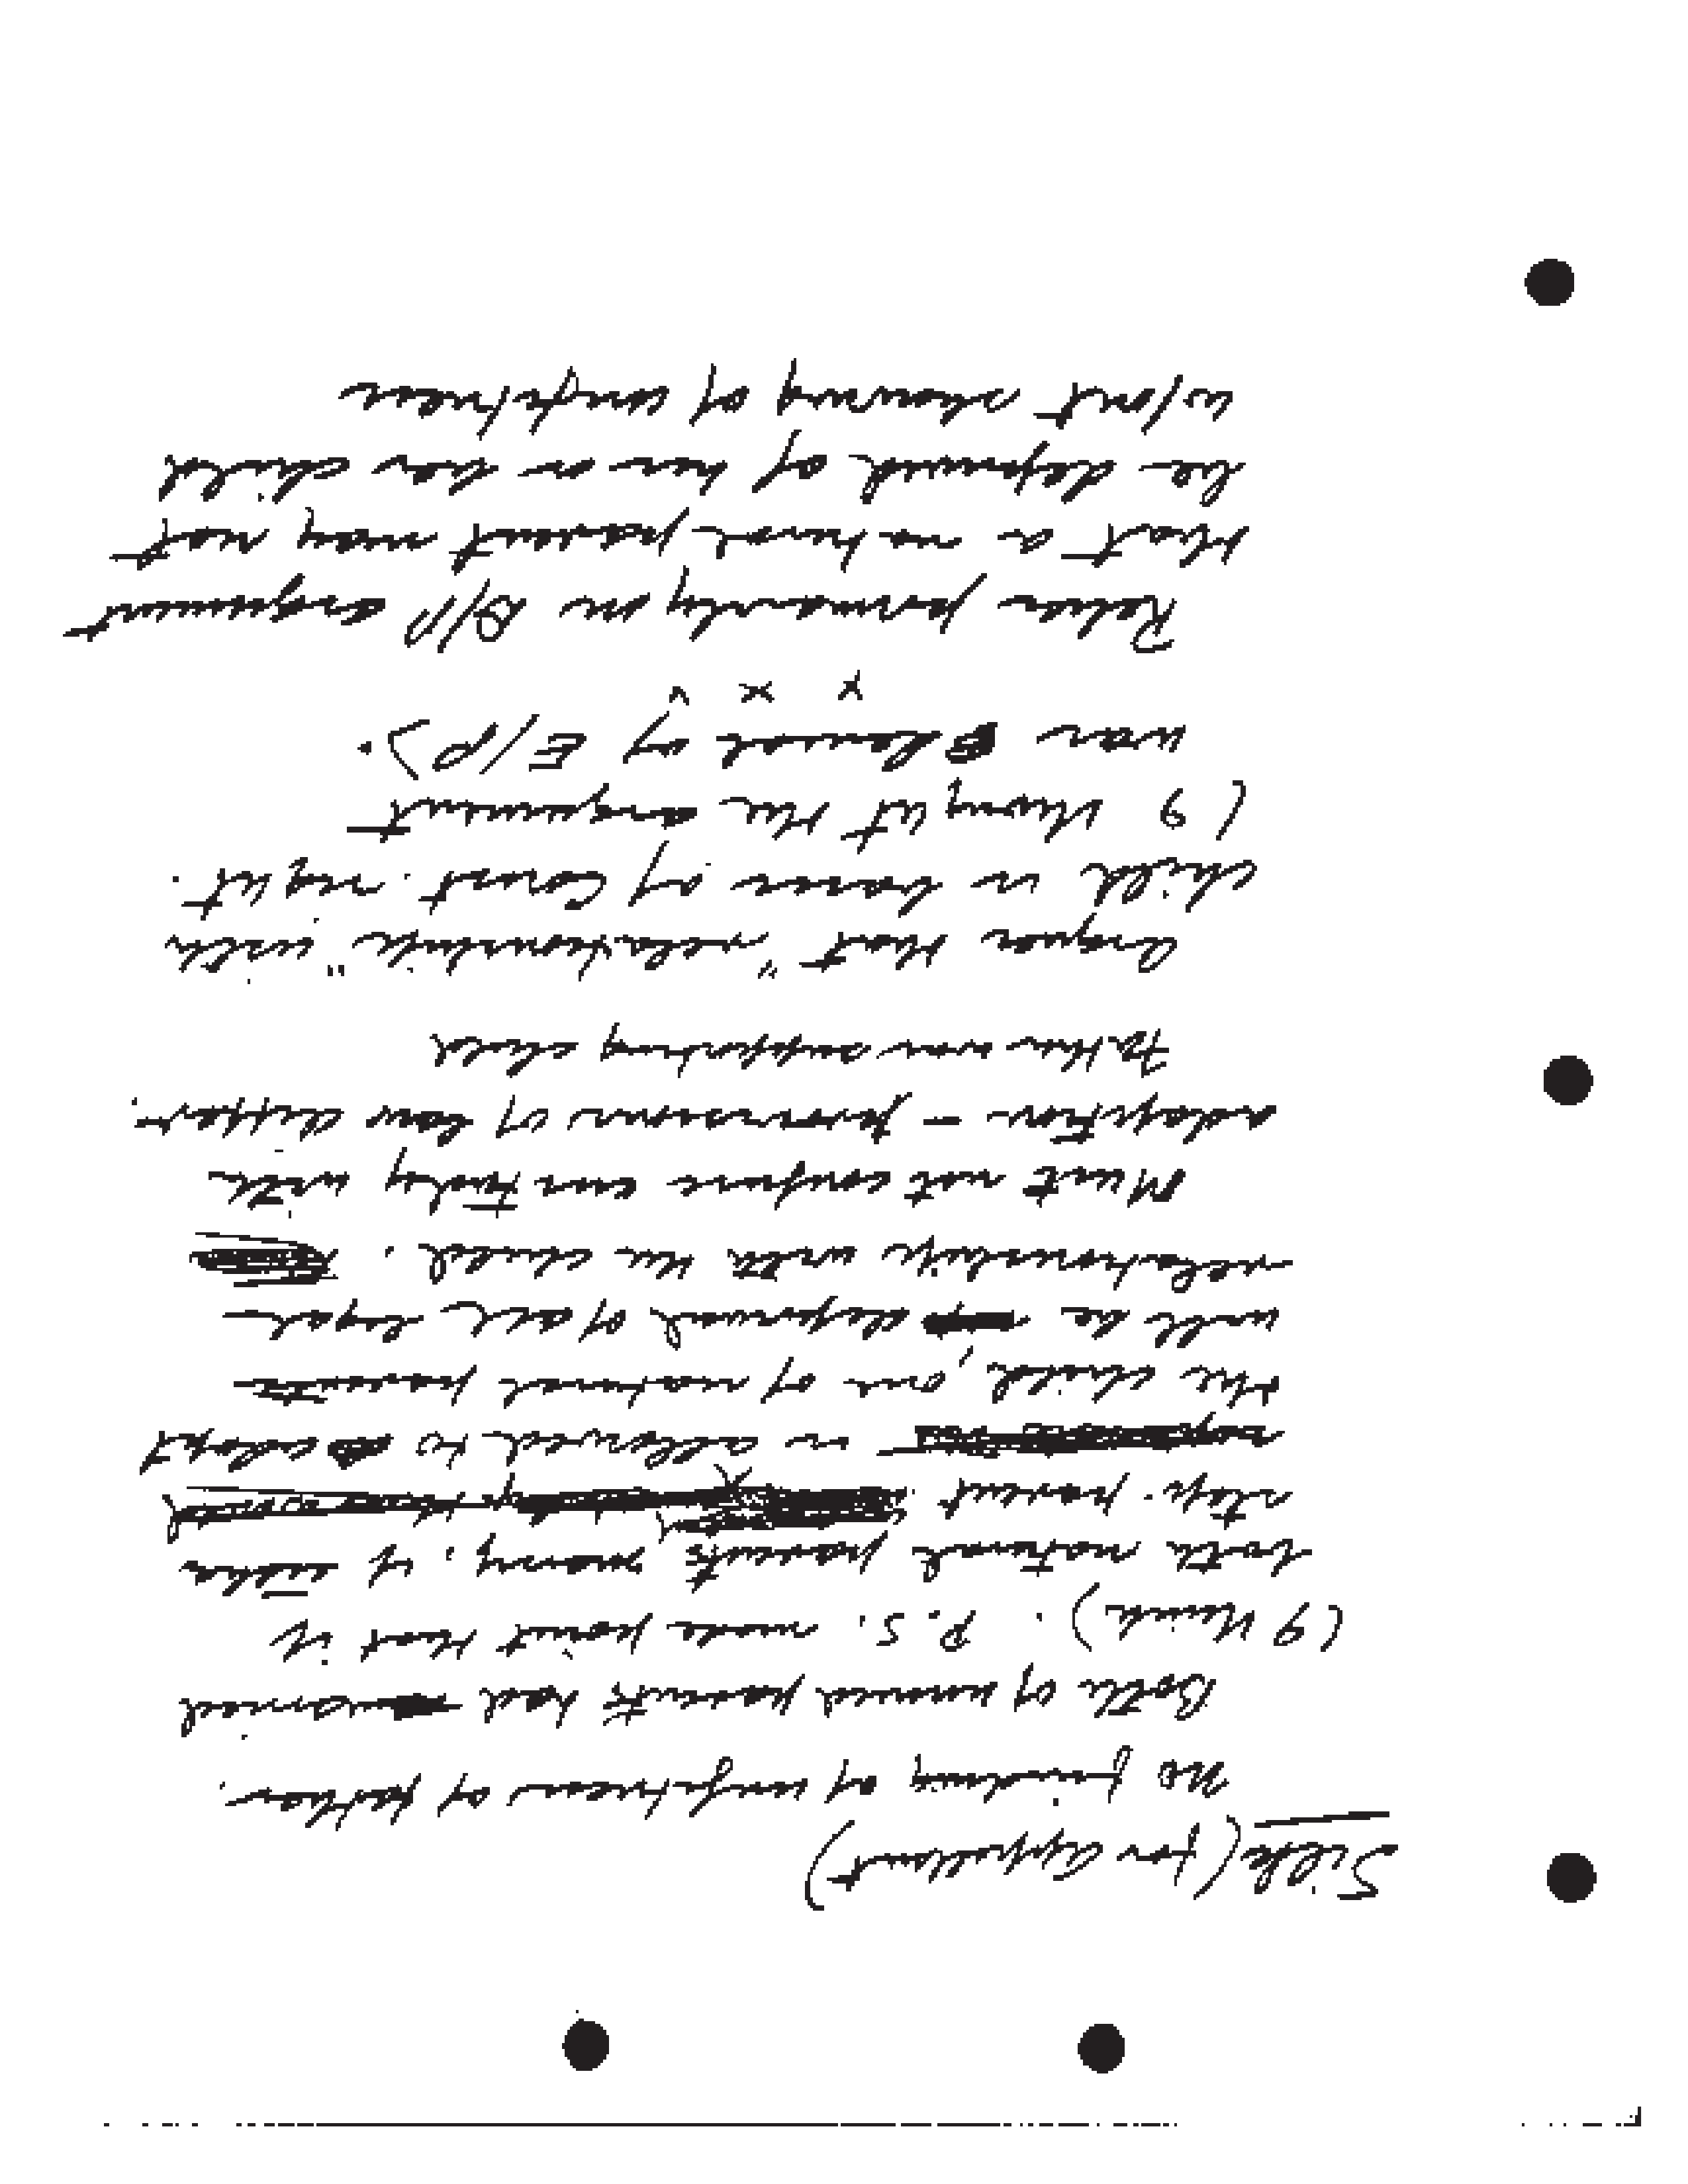 Silk (for Appellant)
No finding of unfitness of father.
Both of unwed parents had married
(I think). P.S. made point that if
both natural parents marry, & if either
step-parent
is allowed to adopt
the child, one of natural parents
will be deprived of all legal
relationship with the child.
Must not confuse custody with
adoption - provisions of law differ.
Father was supporting child
Argues that "relationship" with
child is basis of Const. right.
(I thought the argument
was based on E/P).
x x x
Relies primarily on D/P argument
that a natural parent may not
be deprived of his or her child
w/out showing of unfitness